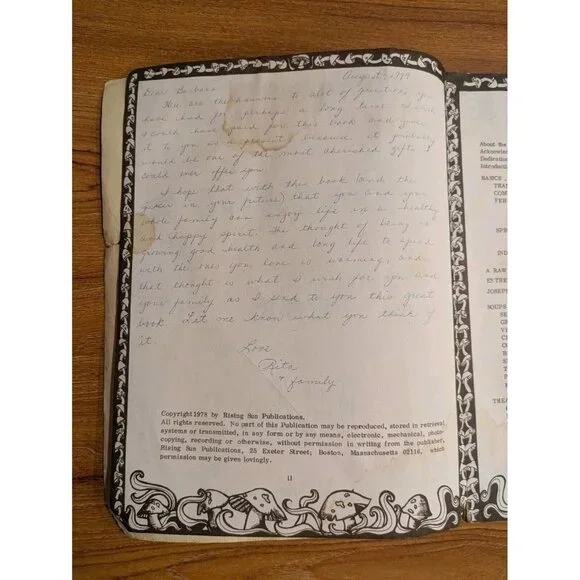 August 1979
Dear Barbara
You are the answers to alot of questions you
have had for perhaps a long time. I wish
I could have saved for this book and give
it to you as a present because it probably
would be one of the most cherished gifts I
could ever offer you.
I hope that with this book (and the
juicer in your future) that you (and your
whole family can enjoy life in a healthy
and happy spirit. The thought of being in
glowing good health and long life to spend
with the ones you love is warming and
that thought is what I wish for you and
your family as I send to you this great
book. Let me know what you think of
it.
Love
Rita
+ family
Copyright 1978 by Rising Sun Publications.
All rights reserved. No part of this Publication may be reproduced, stored in retrieval
systems or transmitted, in any form or by any means, electronic, mechanical, photo-
copying, recording or otherwise, without permission in writing from the publisher,
Rising Sun Publications, 25 Exeter Street; Boston, Massachusetts 02116, which
permission may be given lovingly.
11
About the
Acknow
Dedication
Introducti
BASICS
TRA
COM
FER
SPR
IND
A RAW
23 TRE
JOSEPH
SOUPS
SE
GR
VE
CR
CO
B
S
T
P
A
TREA